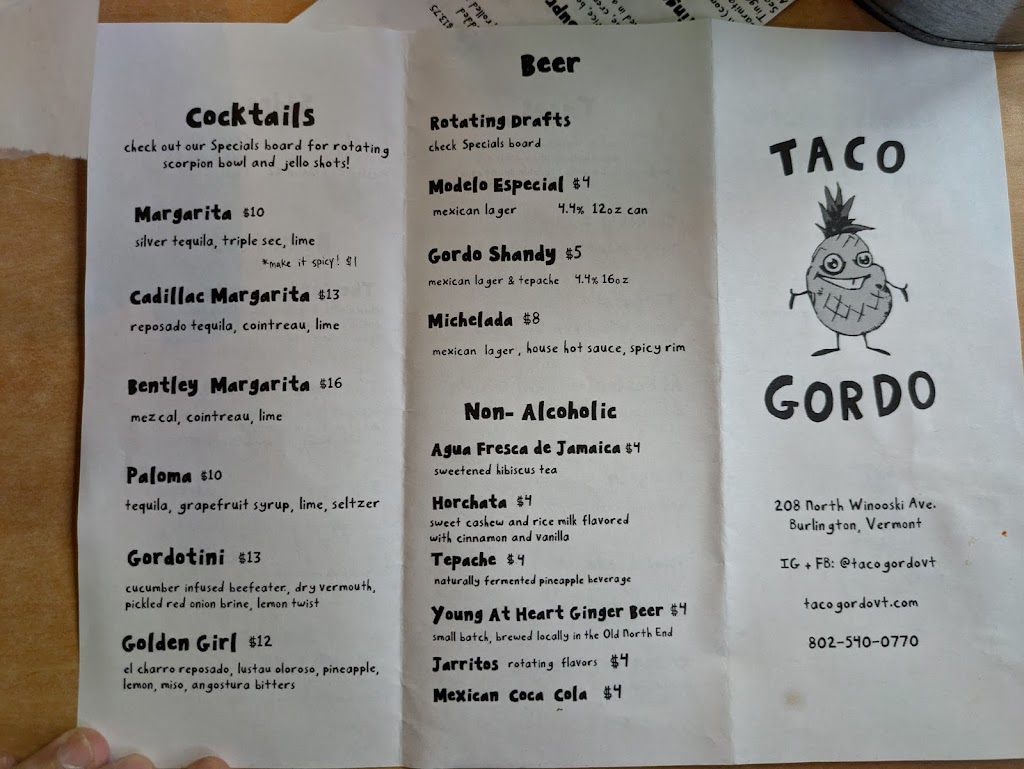 Cocktails
check out our Specials board for rotating
scorpion bowl and jello shots!
Margarita $10
silver tequila, triple sec, lime
*make it spicy! $1
Cadillac Margarita $13
reposado tequila, cointreau, lime
Bentley Margarita $16
mezcal, cointreau, lime
Paloma $10
tequila, grapefruit syrup, lime, seltzer
Gordotini $13
cucumber infused beefeater, dry vermouth,
pickled red onion brine, lemon twist
Golden Girl $12
el charro reposado, lustau oloroso, pineapple,
lemon, miso, angostura bitters
Beer
Rotating Drafts
check Specials board
Modelo Especial $4
mexican lager 4.4% 12oz can
Gordo Shandy $5
mexican lager & tepache 4.4% 16oz
Michelada $8
mexican lager, house hot sauce, spicy rim
Non-Alcoholic
Agua Fresca de Jamaica $4
sweetened hibiscus tea
Horchata $4
sweet cashew and rice milk flavored
with cinnamon and vanilla
Tepache $4
naturally fermented pineapple beverage
Young At Heart Ginger Beer $4
small batch, brewed locally in the Old North End
Jarritos rotating flavors $4
Mexican Coca Cola $4
TACO
GORDO
208 North Winooski Ave.
Burlington, Vermont
IG + FB: @tacogordovt
tacogordovt.com
802-540-0770
$13.75